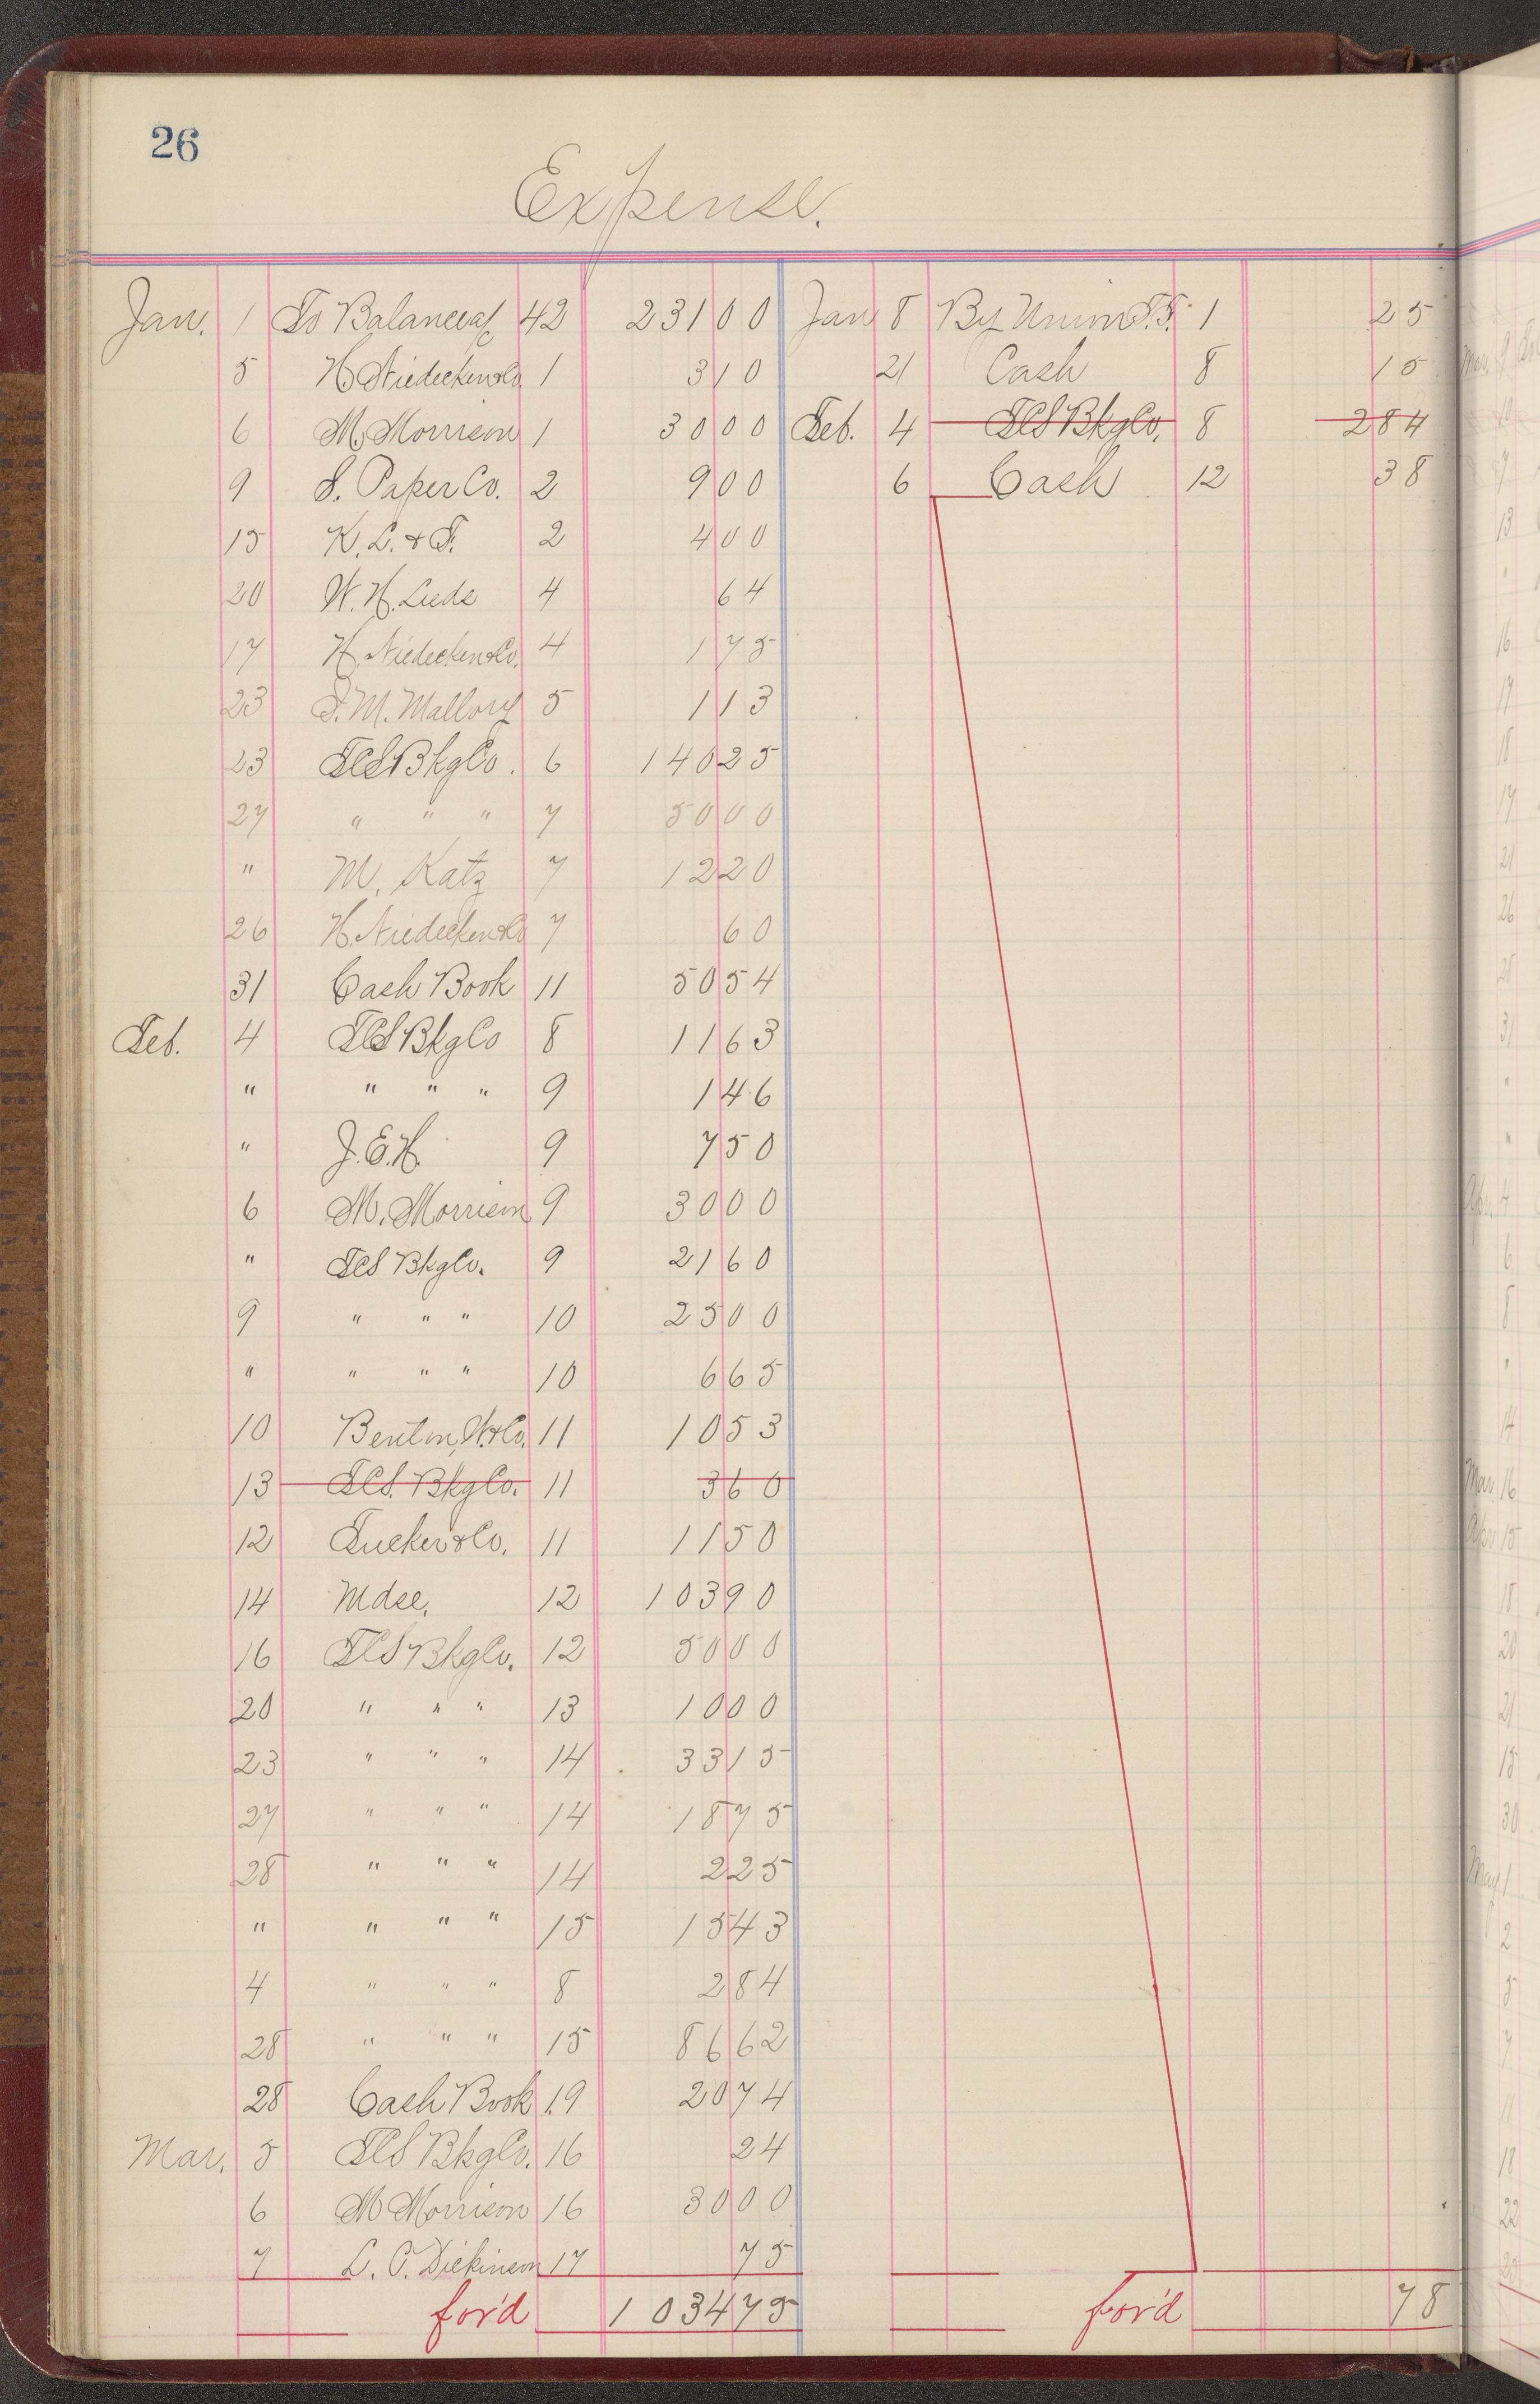 26
Expense.
Jan. 1 To Balance a/c 42 231 00 Jan 8 By Union T.T. 1 25
5 H. Niedecken & Co 1 3 10 21 Cash 8 15
6 M. Morrison 1 30 00 Feb. 4 TCS Bkg Co. 8 2 84
9 S. Paper Co. 2 9 00 6 Cash 12 38
15 K. L. & T. 2 4 00
20 W. H. Leeds 4 64
17 H. Niedecken & Co. 4 1 75
23 T. M. Mallory 5 1 13
23 TCS Bkg Co. 6 140 25
27 " " " 7 50 00
" M. Katz 7 12 20
26 H. Niedecken & Co 7 60
31 Cash Book 11 50 54
Feb. 4 TCS Bkg Co 8 11 63
" " " " 9 1 46
" J. E. H. 9 7 50
6 M. Morrison 9 30 00
" TCS Bkg Co. 9 21 60
9 " " " 10 25 00
" " " " 10 6 65
10 Benton, W. & Co. 11 10 53
13 TCS. Bkg Co. 11 3 60
12 Tucker & Co. 11 11 50
14 Mdse. 12 103 90
16 TCS Bkg Co. 12 50 00
20 " " " 13 10 00
23 " " " 14 33 15
27 " " " 14 18 75
28 " " " 14 2 25
" " " " 15 15 43
4 " " " 8 2 84
28 " " " 15 86 62
28 Cash Book 19 20 74
Mar. 5 TCS Bkg Co. 16 24
6 M Morrison 16 30 00
7 L. O. Dickinson 17 75
for'd 1 034 75 for'd 78